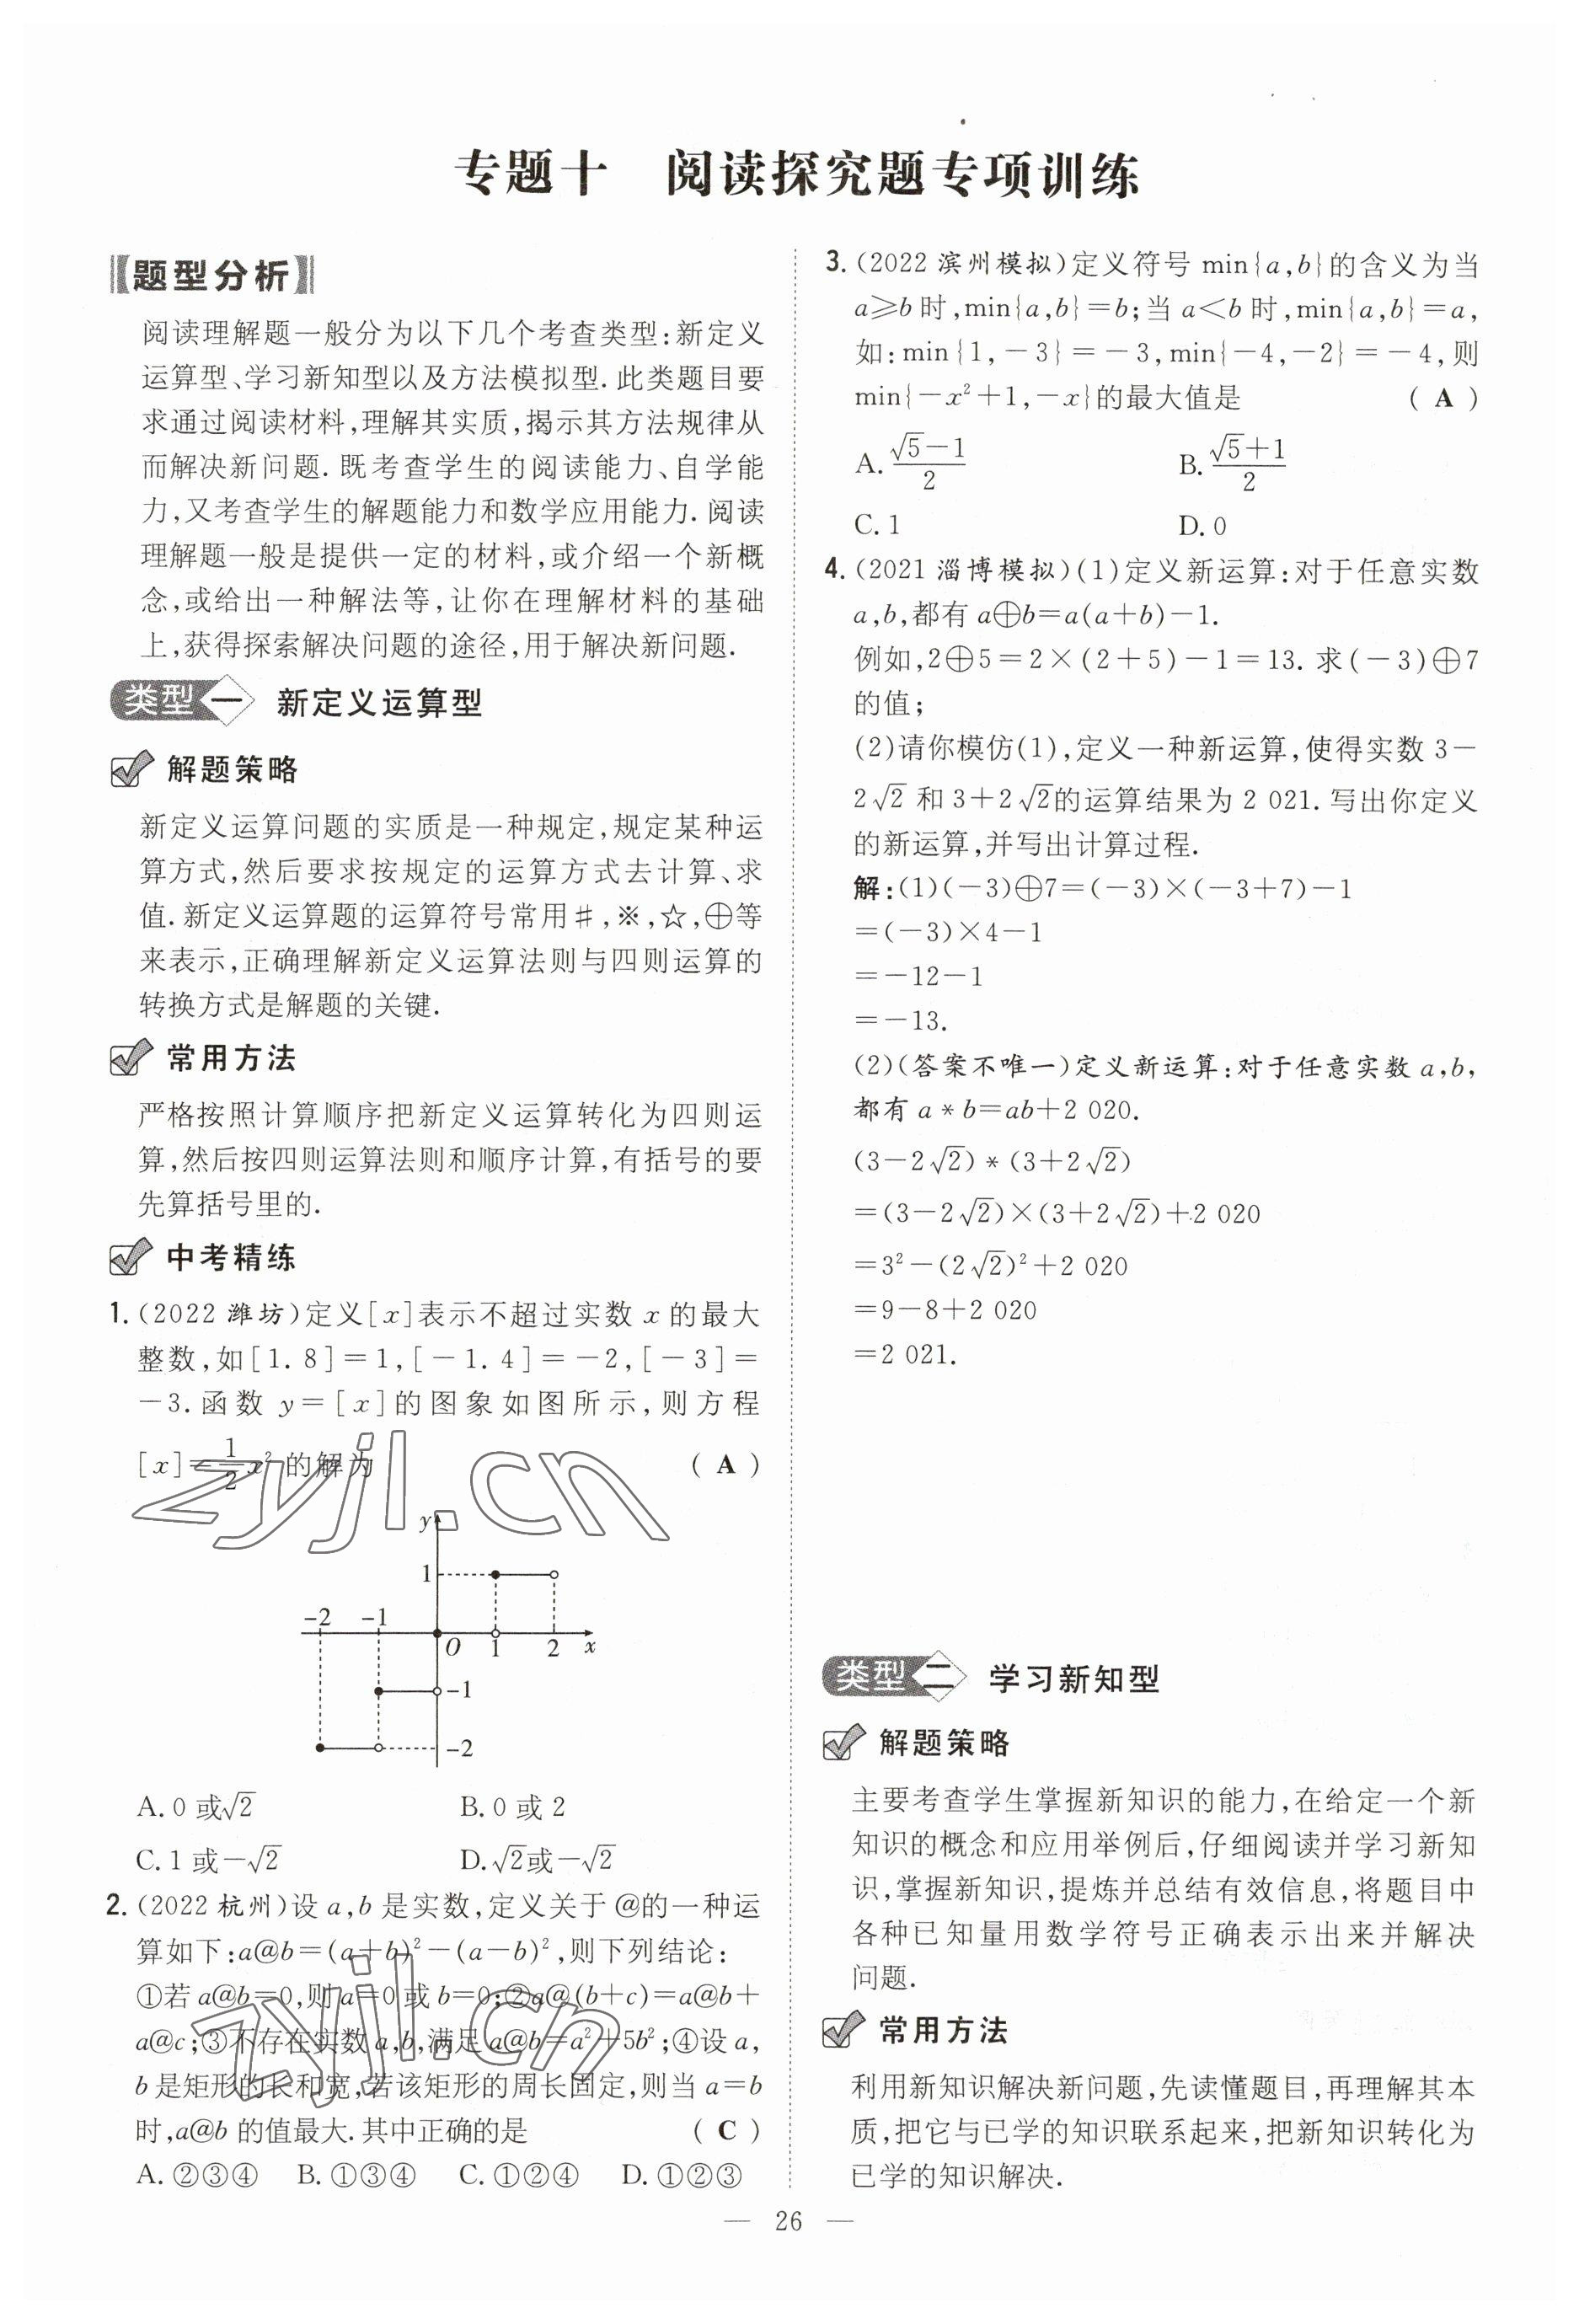 专题十 阅读探究题专项训练
题型分析
阅读理解题一般分为以下几个考查类型:新定义
运算型、学习新知型以及方法模拟型.此类题目要
求通过阅读材料,理解其实质,揭示其方法规律从
而解决新问题.既考查学生的阅读能力、自学能
力,又考查学生的解题能力和数学应用能力.阅读
理解题一般是提供一定的材料,或介绍一个新概
念,或给出一种解法等,让你在理解材料的基础
上,获得探索解决问题的途径,用于解决新问题.
类型一 新定义运算型
解题策略
新定义运算问题的实质是一种规定,规定某种运
算方式,然后要求按规定的运算方式去计算、求
值.新定义运算题的运算符号常用♯,※,☆,⊕等
来表示,正确理解新定义运算法则与四则运算的
转换方式是解题的关键.
常用方法
严格按照计算顺序把新定义运算转化为四则运
算,然后按四则运算法则和顺序计算,有括号的要
先算括号里的.
中考精练
1.(2022 潍坊)定义[x]表示不超过实数 x 的最大
整数,如[1.8]=1,[-1.4]=-2,[-3]=
-3.函数 y=[x]的图象如图所示,则方程
[x]=1/2 x² 的解为 ( A )
zyjl.cn
y
1
-2 -1
O 1 2 x
-1
-2
A.0 或√2 B.0 或 2
C.1 或-√2 D.√2或-√2
2.(2022 杭州)设 a,b 是实数,定义关于@的一种运
算如下:a@b=(a+b)²-(a-b)²,则下列结论:
①若 a@b=0,则 a=0 或 b=0;②a@(b+c)=a@b+
a@c;③不存在实数 a,b,满足 a@b=a²+5b²;④设 a,
b 是矩形的长和宽,若该矩形的周长固定,则当 a=b
时,a@b 的值最大.其中正确的是 ( C )
A.②③④ B.①③④ C.①②④ D.①②③
zyjl.cn
3.(2022 滨州模拟)定义符号 min{a,b}的含义为当
a≥b 时,min{a,b}=b;当 a<b 时,min{a,b}=a,
如:min{1,-3}=-3,min{-4,-2}=-4,则
min{-x²+1,-x}的最大值是 ( A )
A.(√5-1)/2 B.(√5+1)/2
C.1 D.0
4.(2021 淄博模拟)(1)定义新运算:对于任意实数
a,b,都有 a⊕b=a(a+b)-1.
例如,2⊕5=2×(2+5)-1=13.求(-3)⊕7
的值;
(2)请你模仿(1),定义一种新运算,使得实数 3-
2√2 和 3+2√2的运算结果为 2 021.写出你定义
的新运算,并写出计算过程.
解:(1)(-3)⊕7=(-3)×(-3+7)-1
=(-3)×4-1
=-12-1
=-13.
(2)(答案不唯一)定义新运算:对于任意实数 a,b,
都有 a*b=ab+2 020.
(3-2√2)*(3+2√2)
=(3-2√2)×(3+2√2)+2 020
=3²-(2√2)²+2 020
=9-8+2 020
=2 021.
类型二 学习新知型
解题策略
主要考查学生掌握新知识的能力,在给定一个新
知识的概念和应用举例后,仔细阅读并学习新知
识,掌握新知识,提炼并总结有效信息,将题目中
各种已知量用数学符号正确表示出来并解决
问题.
常用方法
利用新知识解决新问题,先读懂题目,再理解其本
质,把它与已学的知识联系起来,把新知识转化为
已学的知识解决.
— 26 —